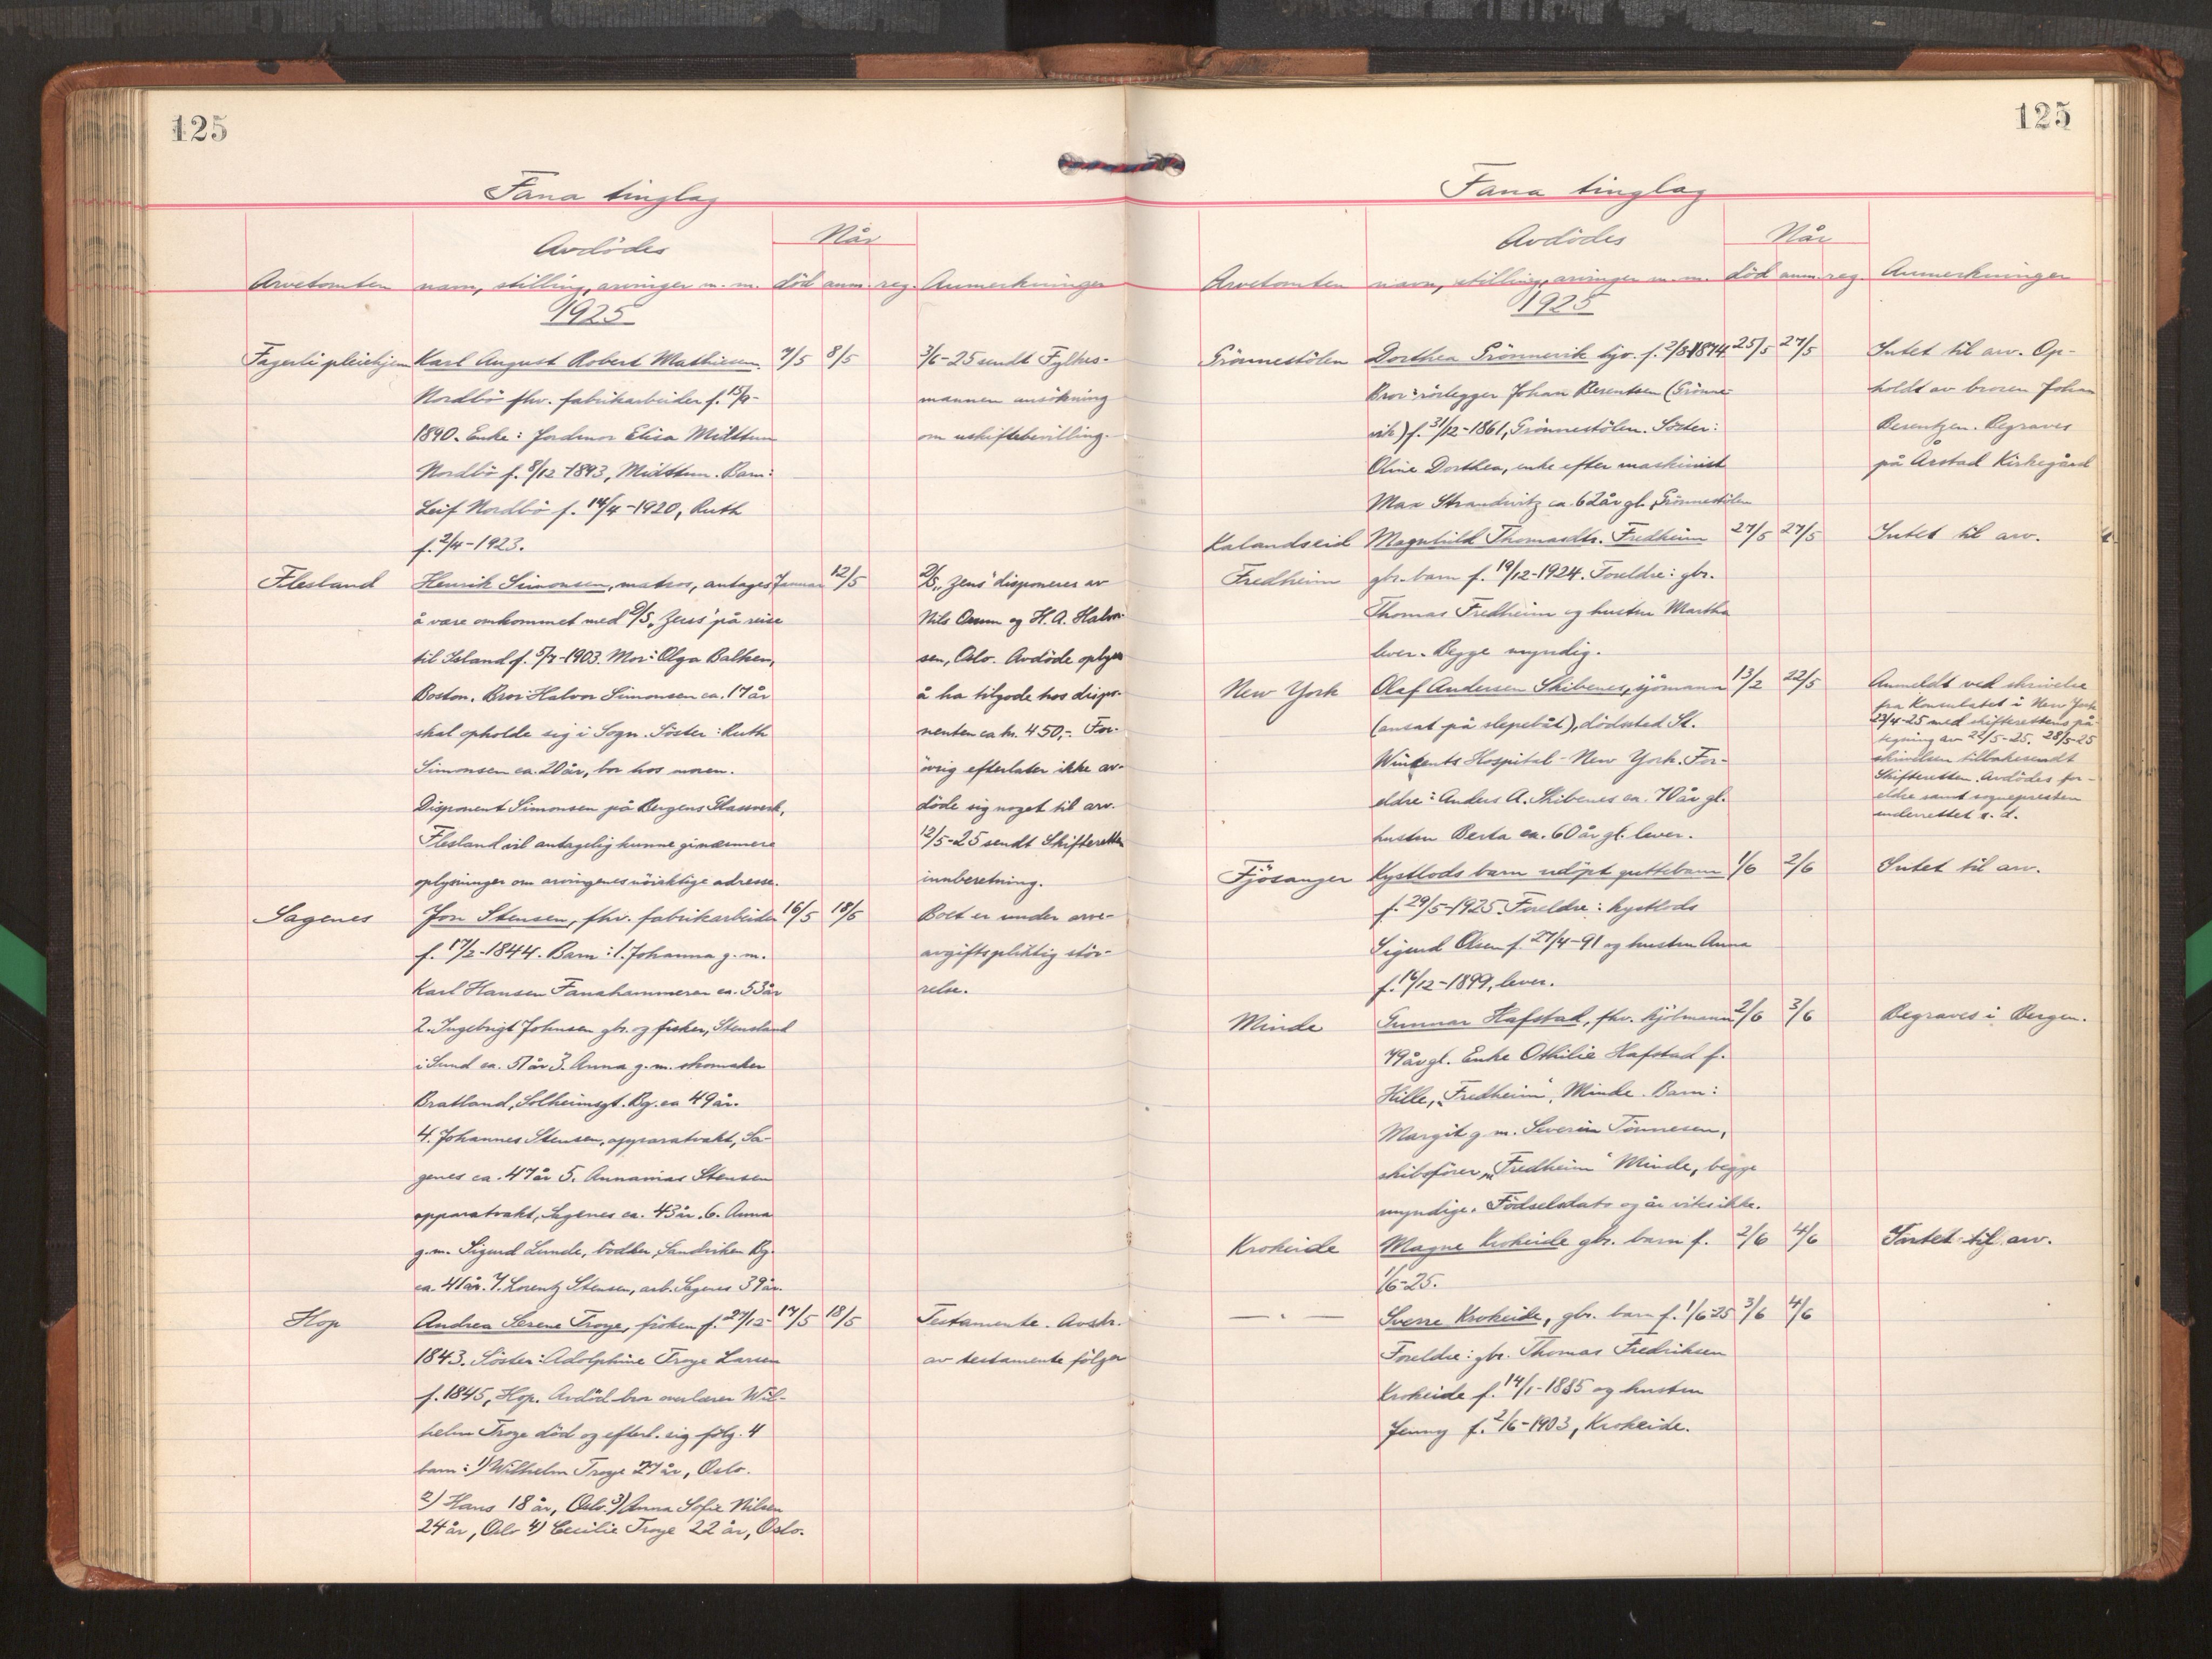 125
Fana tinglag
Avdödes
Når
Arvetomten navn, stilling, arvinger m. m. död anm. reg. Anmerkninger
1925
Fagerli pleiehjem Karl August Robert Mathiesen 7/5 8/5 3/6-25 sendt Fylkes-
Nordbö fhv. fabrikarbeider f. 15/9- mannen ansökning
1890. Enke: Jordmor Elisa Midttun om uskiftebevilling.
Nordbö f. 8/12-1893, Midttun. Barn:
Leif Nordbö f. 14/4-1920, Ruth
f. 2/4-1923.
Flesland Henrik Simonsen, matros, antages Januar 12/5 D/S „Zeus" disponeres av
å være omkommet med D/S „Zeus" på reise Nils Onum og H. A. Halvor-
til Island f. 5/7-1903. Mor: Olga Balken, sen, Oslo. Avdöde oplyses
Boston. Bror: Halvor Simonsen ca. 17 år å ha tilgode hos dispo-
skal opholde sig i Sogn. Söster: Ruth nenten ca kr. 450,-. For-
Simonsen ca. 20 år, bor hos moren. övrig efterlater ikke av-
Disponent Simonsen på Bergens Glassverk, döde sig noget til arv.
Flesland vil antagelig kunne gi nærmere 12/5-25 sendt Skifteretten
oplysninger om arvingenes nöiaktige adresse. innberetning.
Sagenes Jon Stensen, fhv. fabrikarbeider 16/5 18/5 Boet er under arve-
f. 17/2-1844. Barn: 1. Johanna g. m. avgiftspliktig stör-
Karl Hansen Fanahammeren ca. 53 år relse.
2. Ingebrigt Johnsen gbr. og fisker, Stensland
i Sund ca. 51 år 3. Anna g. m. skomaker
Bratland, Solheimsgt. Bg. ca 49 år.
4. Johannes Stensen, apparatvakt, Sa-
genes ca. 47 år 5. Annanias Stensen
apparatvakt, Sagenes ca. 43 år. 6. Anna
g. m. Sigurd Lunde, bödker, Sandviken Bg.
ca. 41 år. 7. Lorentz Stensen, arb. Sagenes 39 år.
Hop Andrea Serene Troye, fröken f. 27/12- 17/5 18/5 Testamente. Avskr.
1843. Söster: Adolphine Troye Larsen av testamente fölger
f. 1845, Hop. Avdöd bror overlærer Wil-
helm Troye död og efterl. sig fölg. 4
barn: 1) Wilhelm Troye 27 år, Oslo.
2) Hans 18 år, Oslo. 3) Anna Sofie Nilsen
24 år, Oslo 4) Cecilie Troye 22 år, Oslo.
125
Fana tinglag
Avdödes
Når
Arvetomten navn, stilling, arvinger m. m. död anm. reg. Anmerkninger
1925
Grönnestölen Dorthea Grönnevik syv. f. 2/8-1874 25/5 27/5 Intet til arv. Op-
Bror: rörlegger Johan Berentsen (Grönne- holdt av broren Johan
vik) f. 31/12-1861, Grönnestölen. Söster: Berentzen. Begraves
Oline Dorthea, enke efter maskinist på Årstad Kirkegård
Max Strandwitz ca. 62 år gl. Grönnestölen
Kalandseid Magnhild Thomasdtr. Fredheim 27/5 27/5 Intet til arv.
Fredheim gbr. barn f. 19/12-1924. Foreldre: gbr.
Thomas Fredheim og hustru Martha
lever. Begge myndig.
New York Olaf Andersen Skibenes, sjömann 13/2 22/5 Anmeldt ved skrivelse
fra Konsulatet i New York
(ansat på slepebåt), dödssted St. 23/4-25 med skifterettens på-
tegning av 22/5-25. 28/5-25
Winsents Hospital - New York. For- skrivelsen tilbakesendt
Skifteretten. Avdödes for-
eldre: Anders A. Skibenes ca. 70 år gl. eldre samt sognepresten
underrettet s. d.
hustru Berta ca. 60 år gl. lever.
Fjösanger Kystlods barn udöpt guttebarn 1/6 2/6 Intet til arv.
f. 29/5-1925. Foreldre: kystlods
Sigurd Olsen f. 27/4-91 og hustru Anna
f. 16/12-1899, lever.
Minde Gunnar Hafstad, fhv. kjölmann 2/6 3/6 Begraves i Bergen.
79 år gl. Enke Othilie Hafstad f.
Hille, „Fredheim", Minde. Barn:
Margit g. m. Severin Tönnesen,
skibsförer, „Fredheim" Minde, begge
myndige. Födselsdato og år vites ikke.
Krokeide Magne Krokeide gbr. barn f. 2/6 4/6 Intet til arv.
1/6-25.
— „ — Sverre Krokeide, gbr. barn f. 1/6-25 3/6 4/6
Foreldre: gbr. Thomas Fredriksen
Krokeide f. 14/1-1885 og hustru
Jenny f. 2/6-1903, Krokeide.